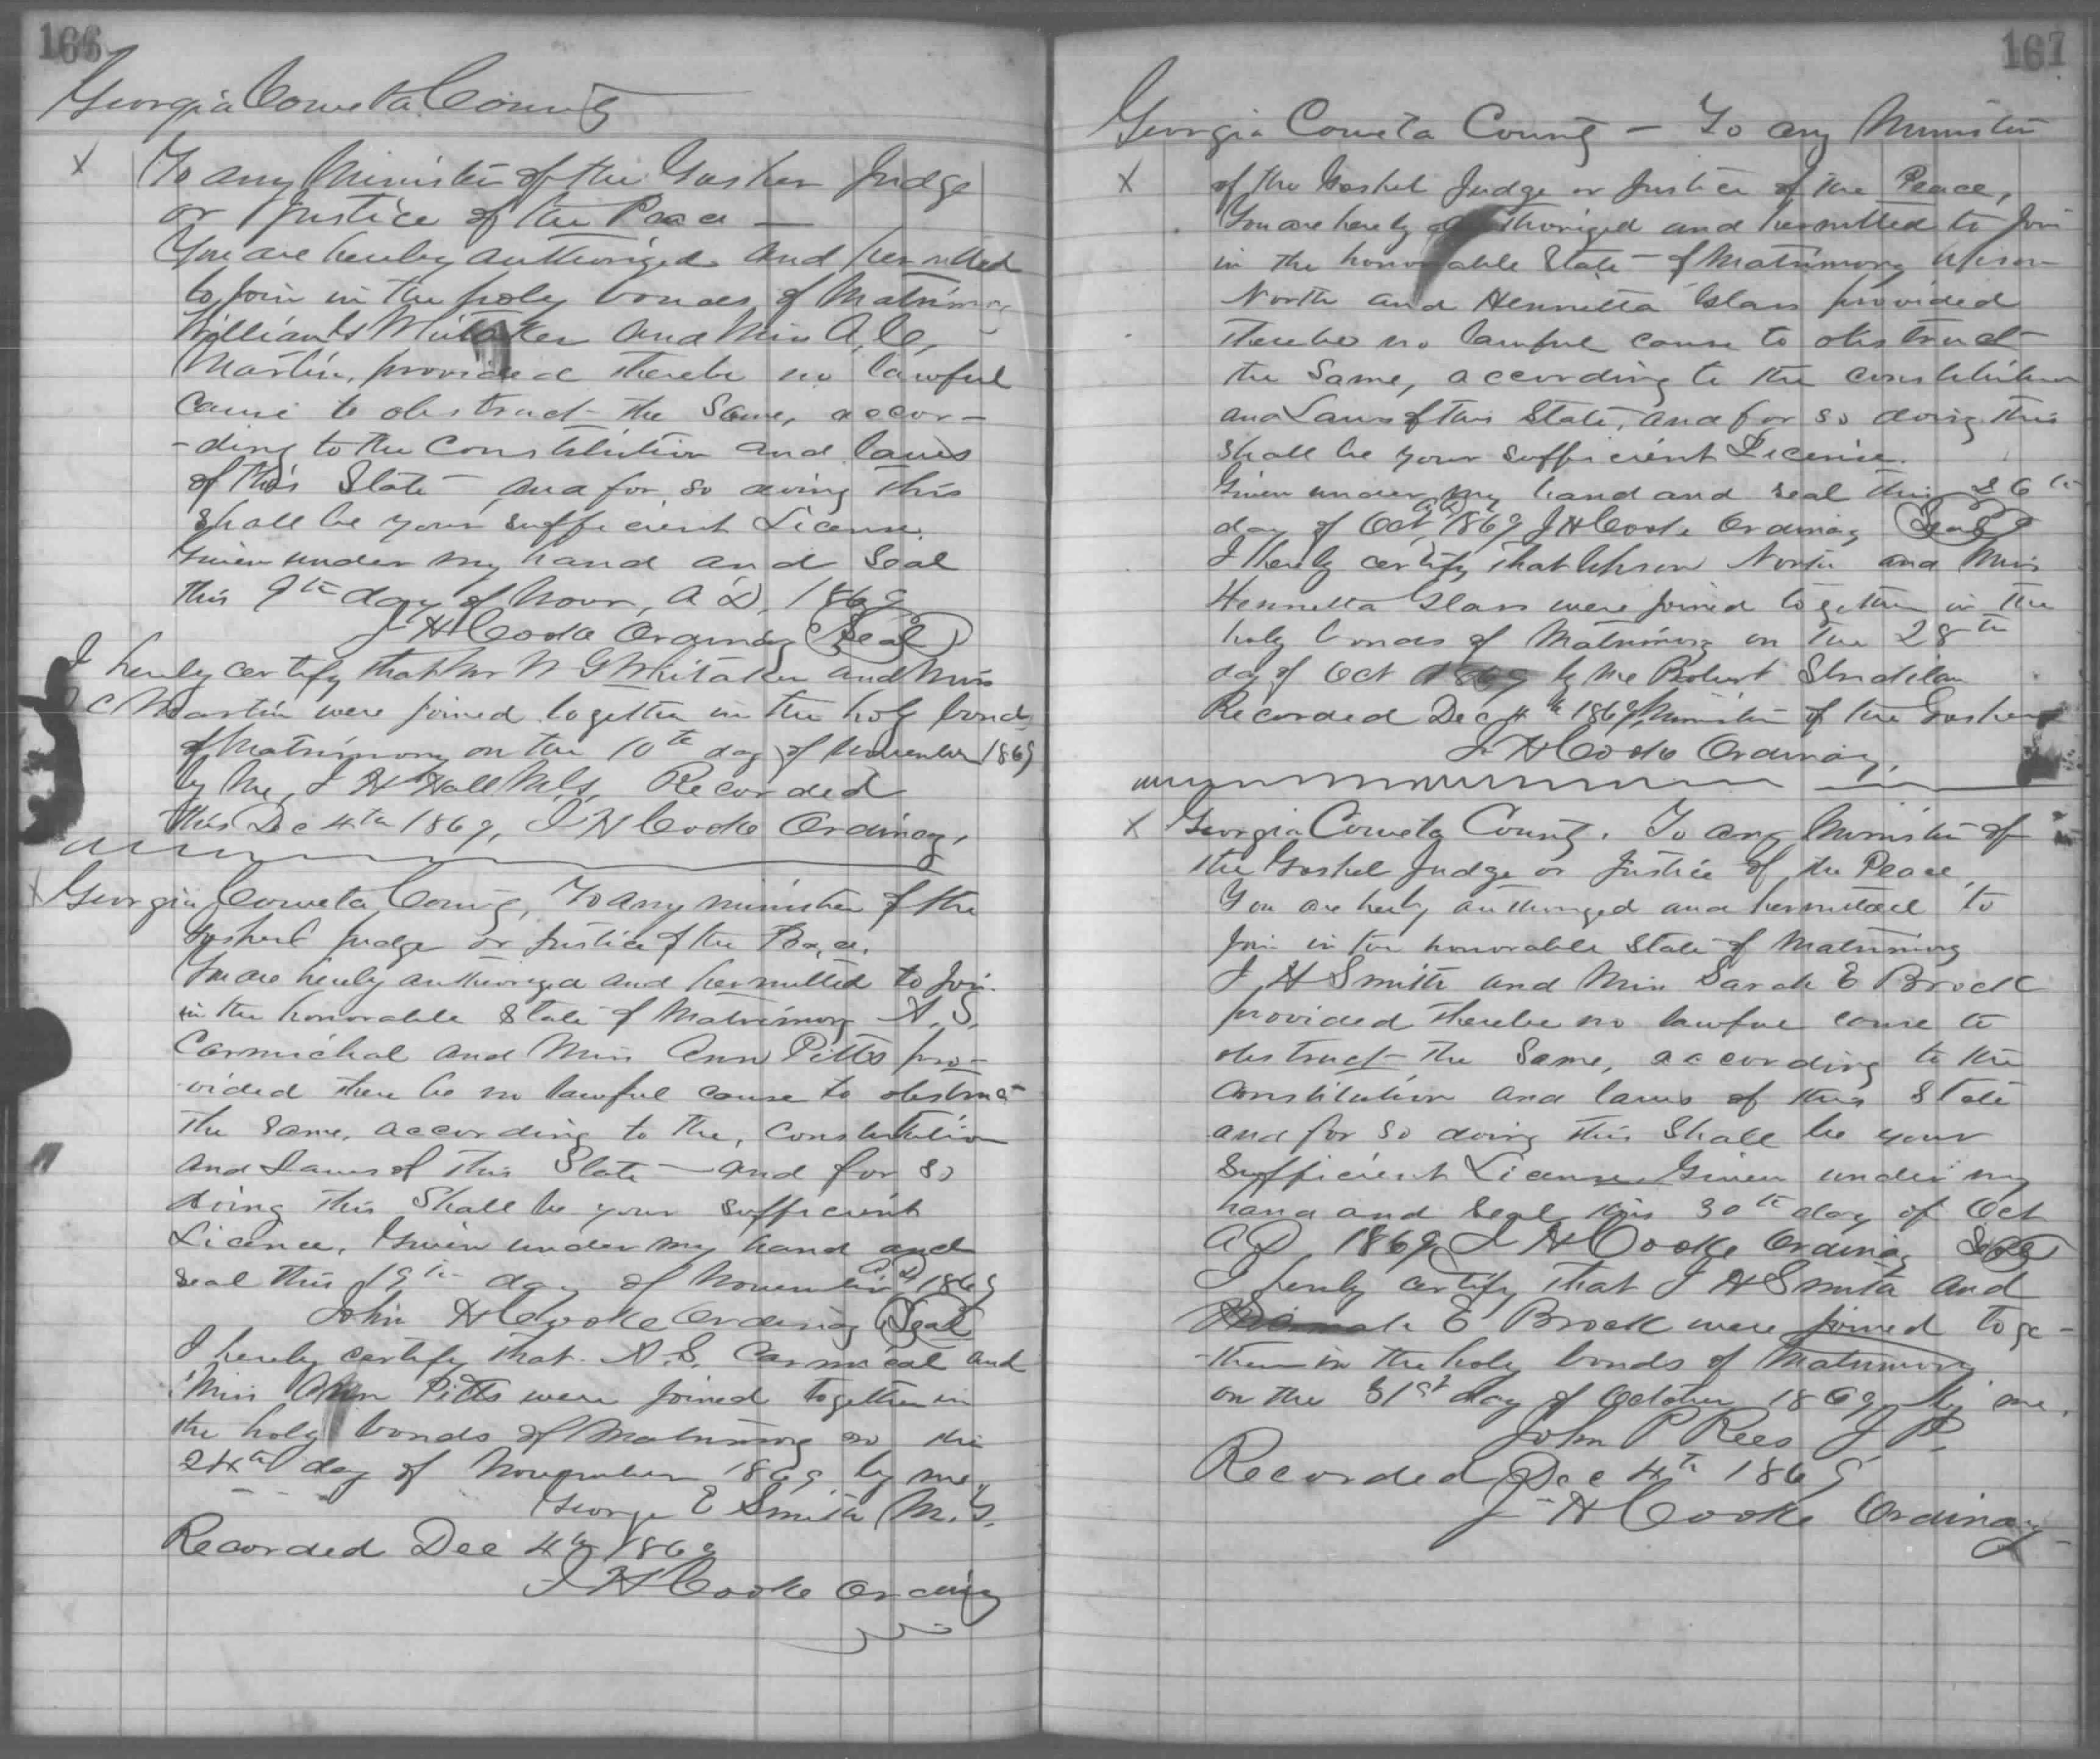 166
Georgia Coweta County
X To any Minister of the Gosper Judge
or Justice of the Peace —
You are hereby authorized and permitted
to join in the holy bonds of Matrimony
Whitaker and Miss A. C.
Martin, provided there be no lawful
cause to obstruct the same, accor-
-ding to the Constitution and laws
of this State and for so doing this
shall be your sufficient License.
Given under my hand and seal
this 9th day of Novr, A D, 1869
J H Cooke Ordinary (Seal)
I hereby certify that Mr W G Whitaker and Miss
C Martin were joined together in the holy bonds
of Matrimony on the 10th day of November 1869
by me, J H Hall M.G. Recorded
this Dec 4th 1869, J H Cooke Ordinary,
X Georgia Coweta County, To any minister of the
Gospel judge or justice of the Peace.
You are hereby authorized and permitted to join
in the honorable State of Matrimony A. S.
Carmichal and Miss Ann Pitts pro-
-vided there be no lawful cause to obstruct
the same, according to the, constitution
and Laws of this State — and for so
doing this shall be your sufficient
Licence, Given under my hand and
seal this 19th day of November AD 1869
John H Cooke Ordinary (Seal)
I hereby certify that A. S. Carmical and
Miss Ann Pitts were joined together in
the holy bonds of Matrimony on the
24th day of November 1869 by me,
George E Smith M.G.
Recorded Dec 4th 1869
J H Cooke Ordinary
167
Georgia Coweta County — To any Minister
X of the Gospel Judge or Justice of the Peace,
You are hereby authorized and permitted to join
in the honorable State of Matrimony Upson
North and Henrietta Glass provided
there be no lawful cause to obstruct
the same, according to the constitution
and Laws of this State, and for so doing this
shall be your sufficient License.
Given under my hand and seal this 26th
day of Oct AD 1869 J H Cooke Ordinary (Seal)
I hereby certify that Upson North and Miss
Henrietta Glass were joined together in the
holy bonds of Matrimony on the 28th
day of Oct 1869 by me Robert
Recorded Dec 4th 1869 Minister of the Gospel
J H Cooke Ordinary,
X Georgia Coweta County. To any Minister of
the Gospel Judge or Justice of the Peace,
You are hereby authorized and permitted to
join in the honorable State of Matrimony
J H Smith and Miss Sarah E Brock
provided there be no lawful cause to
obstruct the same, according to the
constitution and laws of this State
and for so doing this shall be your
sufficient License Given under my
hand and seal this 30th day of Oct
AD 1869, J H Cooke Ordinary Seal
I hereby certify that J H Smith and
E Brock were joined toge-
-ther in the holy bonds of Matrimony
on the 31st day of October 1869 by me.
John P Rees J P.
Recorded Dec 4th 1869
J H Cooke Ordinary